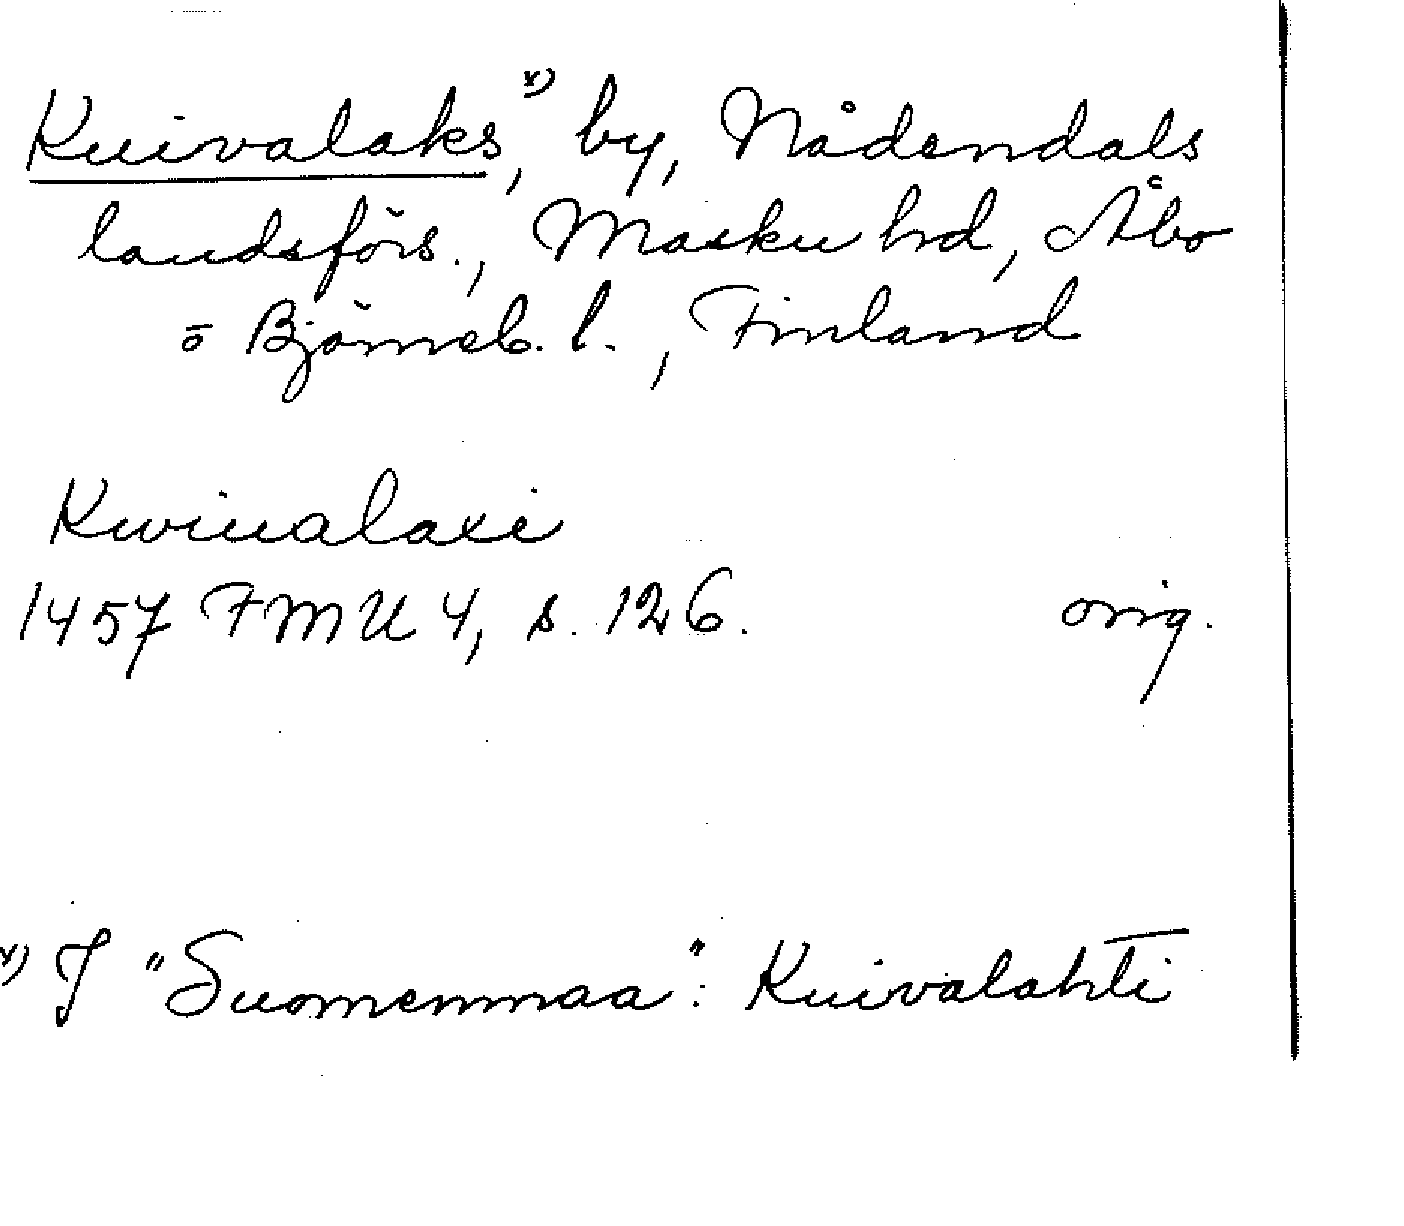 Kuivalaks,ˣ⁾ by, Nådendals
landsförs., Masku hd, Åbo
o Björneb. l., Finland
Kwiualaxi
1457 FMU 4, s. 126. orig.
x) I "Suomenmaa": Kuivalahti